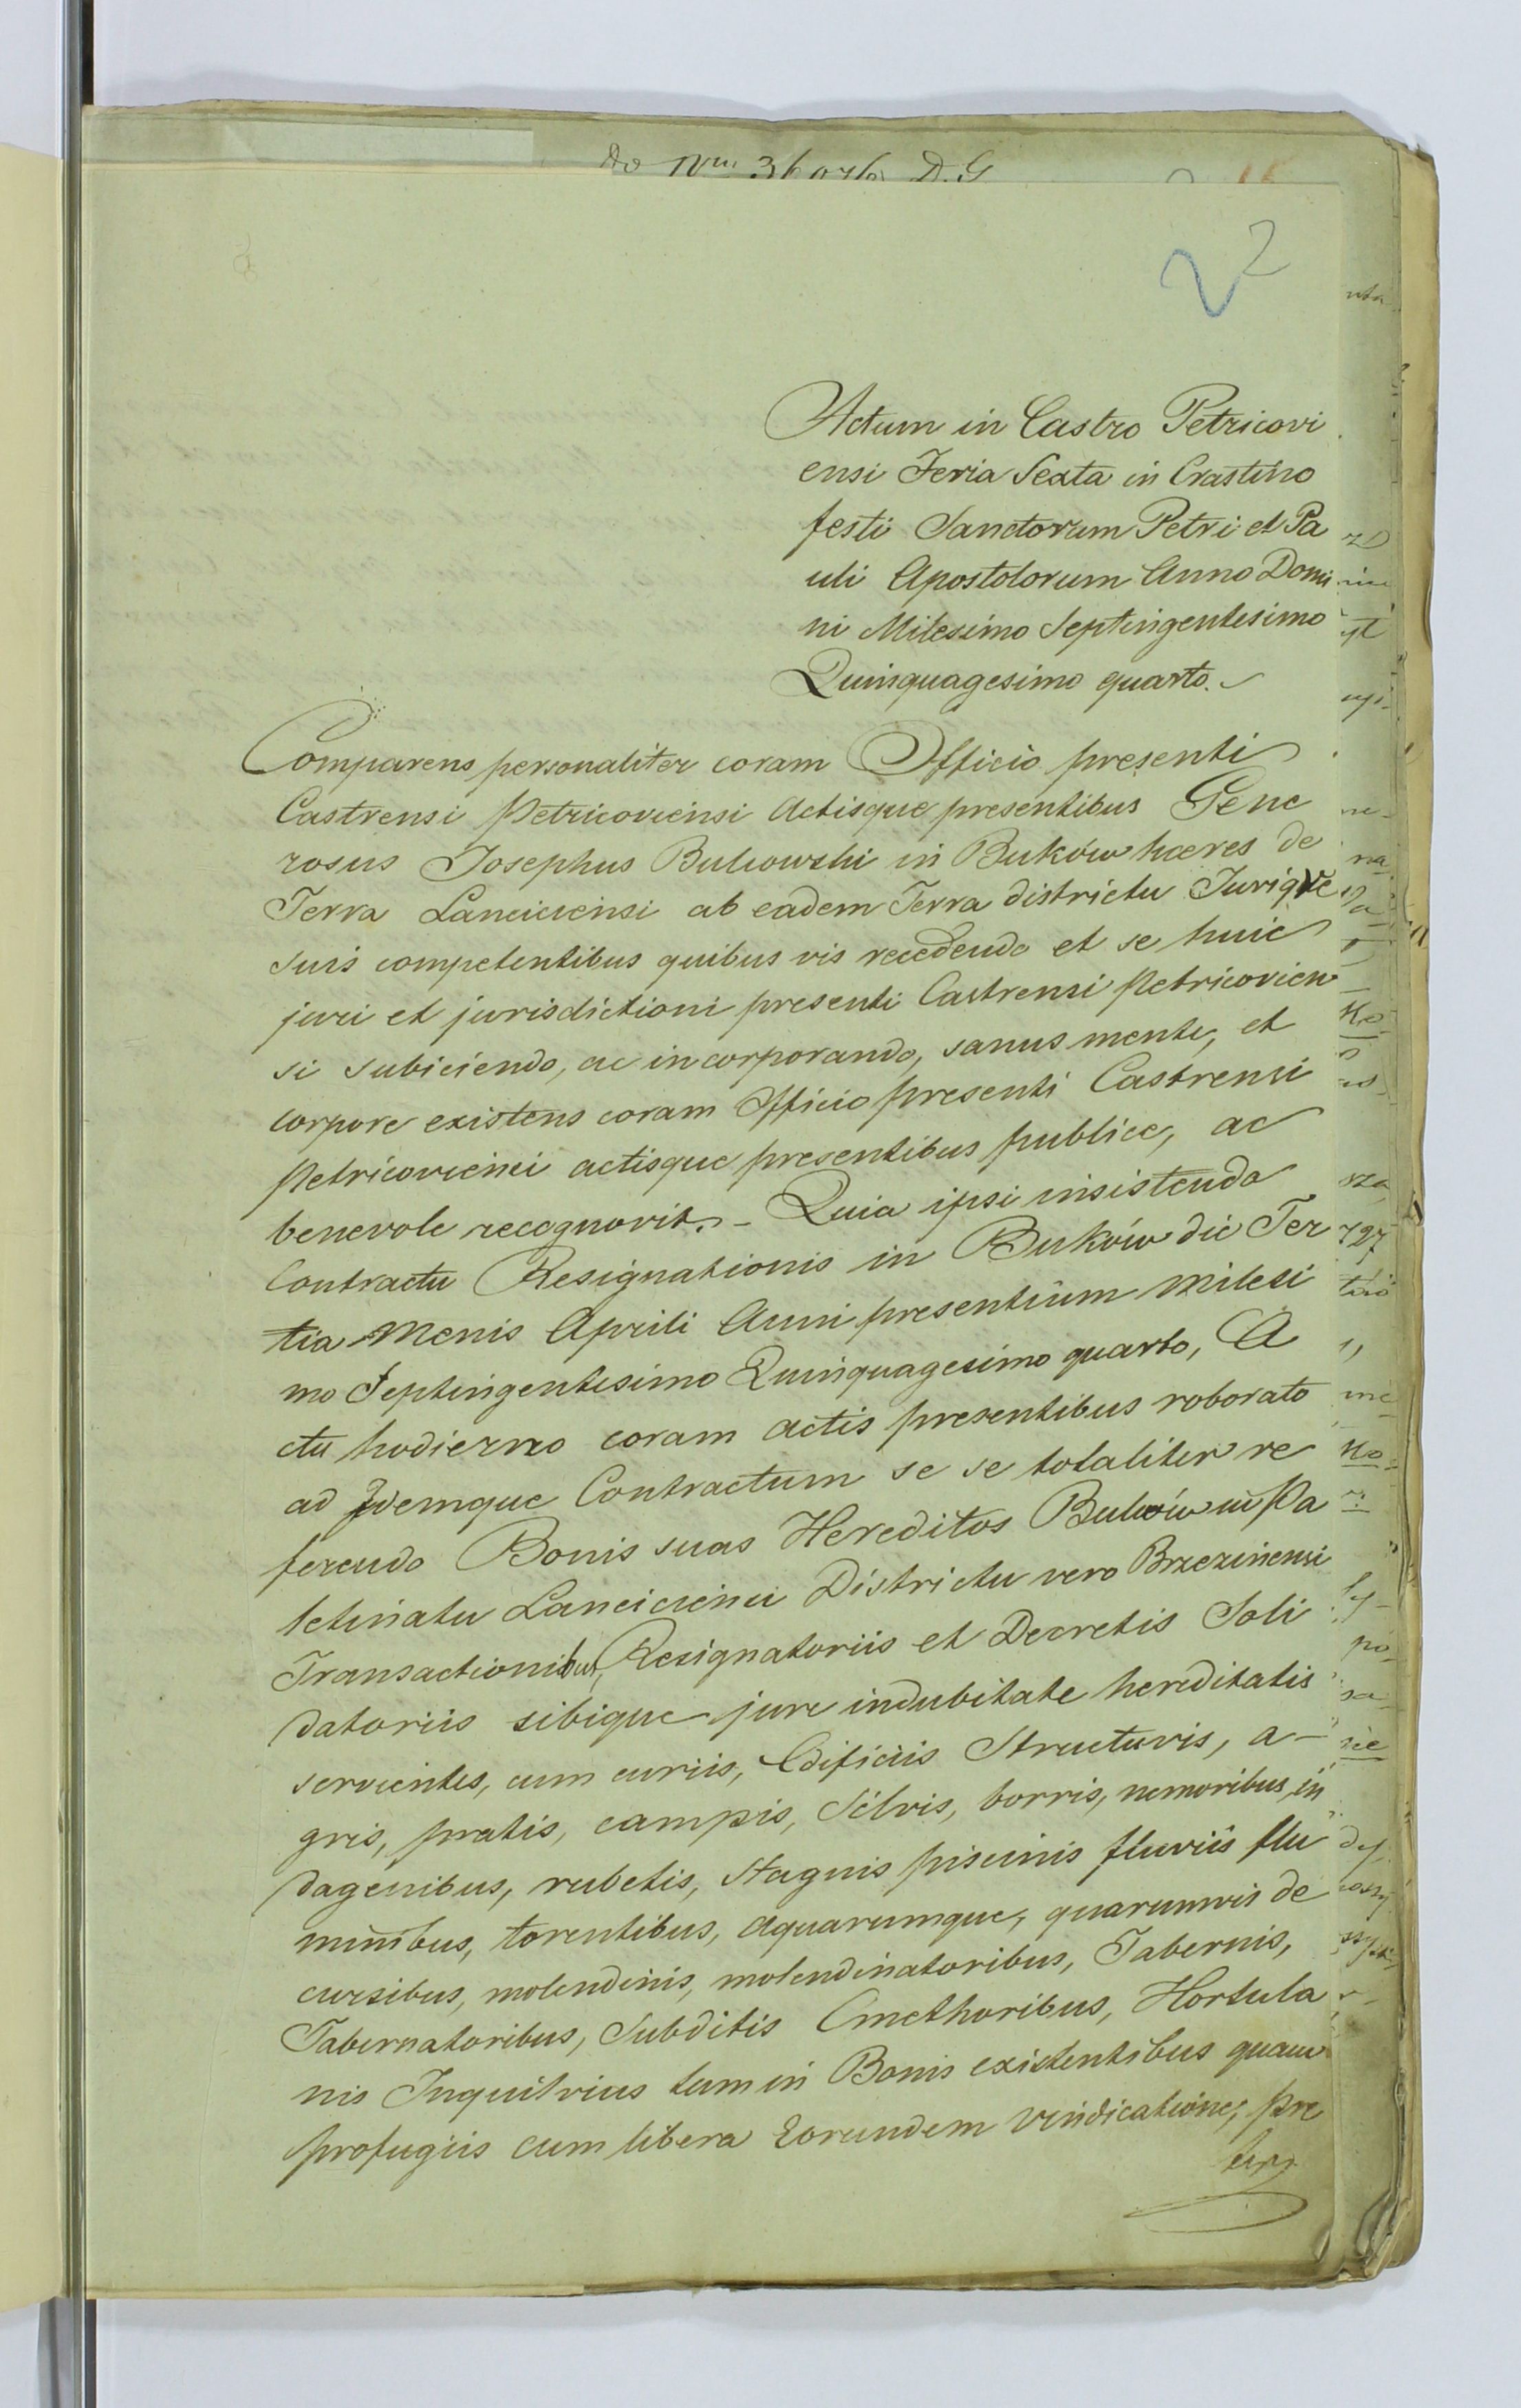 Do Nru 36
2
Actum in Castro Petricovi
ensi Feria Sexta in Crastino
festi Sanctorum Petri et Pa
uli Apostolorum Anno Domi
ni Milesimo Septingentesimo
Quinquagesimo quarto.
Comparens personaliter coram Officio presenti
Castrensi Petricoviensi Actisque presentibus Gene
rosus Josephus Bukowski in Buków hœres de
Terra Lanciciensi ab eadem Terra districtu Jurique
suis competentibus quibus vis recedendo et se huic
juri et jurisdictioni presenti Castrensi Petricovien
si subiciendo, ac incorporando, sanus mente, et
corpore existens coram Officio presenti Castrensi
Petricoviensi actisque presentibus publice, ac
benevole recognovit. – Quia ipsi insistendo
Contractu Resignationis in Buków die Ter
tia Menis Aprili Anni presentium Milesi
mo Septingentesimo Quinquagesimo quarto, A
ctu hodierno coram actis presentibus roborato
ad Idemque Contractum se se totaliter re
ferendo Bonis suas Hereditos Buków in Pa
letinatu Lanciciensi Districtu vero Brzezinensi
Transactionibus, Resignatoriis et Decretis Soli
datoriis sibique jure indubitate hereditatis
servientes, cum curiis, Edificiis Structuris, a–
gris, pratis, campis, Silvis, borris, nemoribus, in
dagenibus, rubetis, Stagnis piscinis fluviis flu
minibus, torentibus, aquarumque, quarumvis de
cursibus, molendinis, molendinatoribus, Tabernis,
Tabernatoribus, Subditis Cmethoribus, Hortula
nis Inquilrius tum in Bonis existentibus quam
profugiis cum libera Eorundem vindicatione, pre